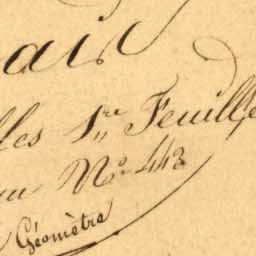 air
lles 1re Feuille
au No 443
Géomètre